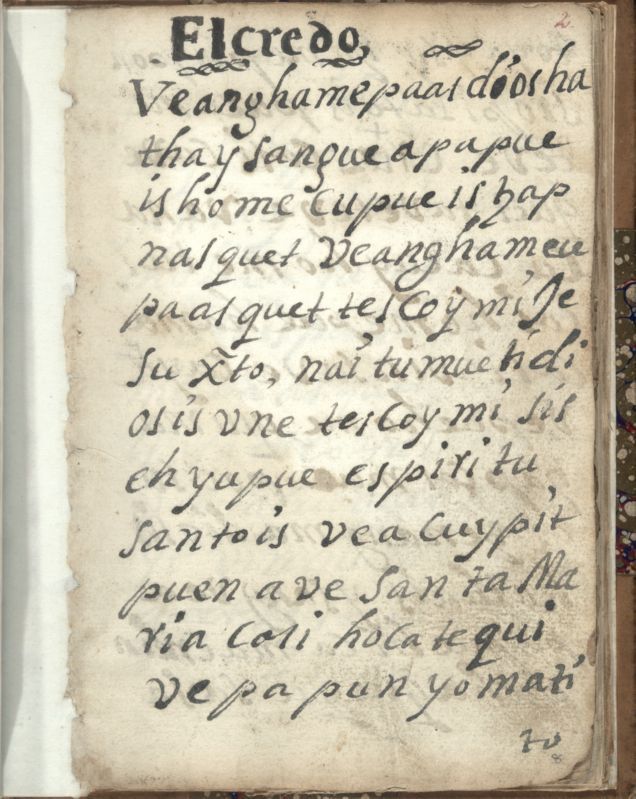 El credo,
2
Veanghamepaas diosha
thaysangueapapue
ishome Cupueis hap
nasquet Veanghameu
paasquet tescoymi Je
su xp̃to, nai tumuetidi
osis vne tescoymi sis
ehyupue espiritu
santois vea Cuypit
puen ave SantaMa
ria Cosi hocatequi
ve pa pun yomati
to
8